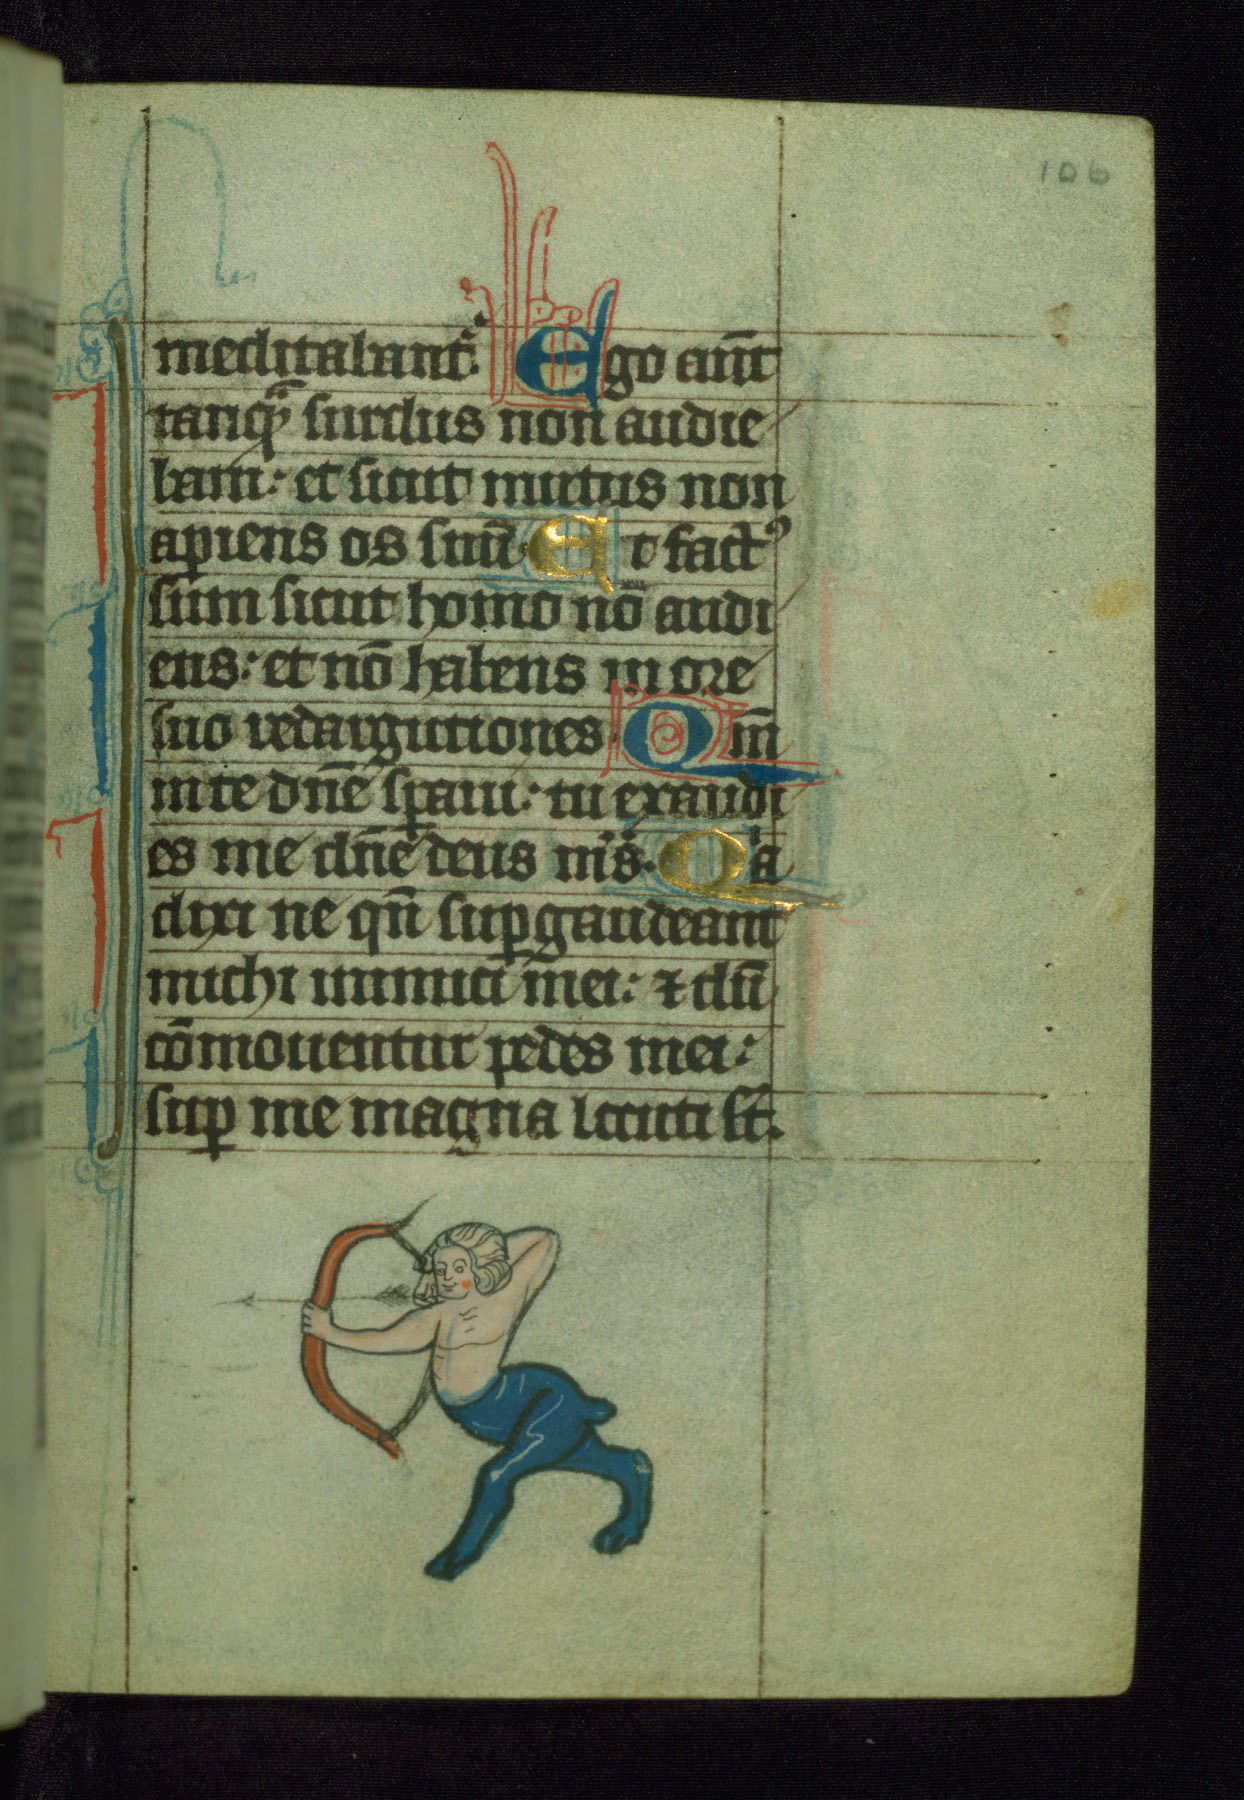 106
meditabant᷑. Ego aūt
tanq̃ surdus non audie
bam: et sicut mutus non
apiens os suū. Et factꝰ
sum sicut homo nō audi
ens: et nō habens in ore
suo redargutiones. Qm̄
in te dn̄e sꝑaui: tu exaudi
es me dn̄e deus mˢ. Qⁱa
dixi ne qn̄ suꝑgaudeant
michi inimici mei: ⁊ dū
cōmouentur pedes mei:
suꝑ me magna locuti st̄.